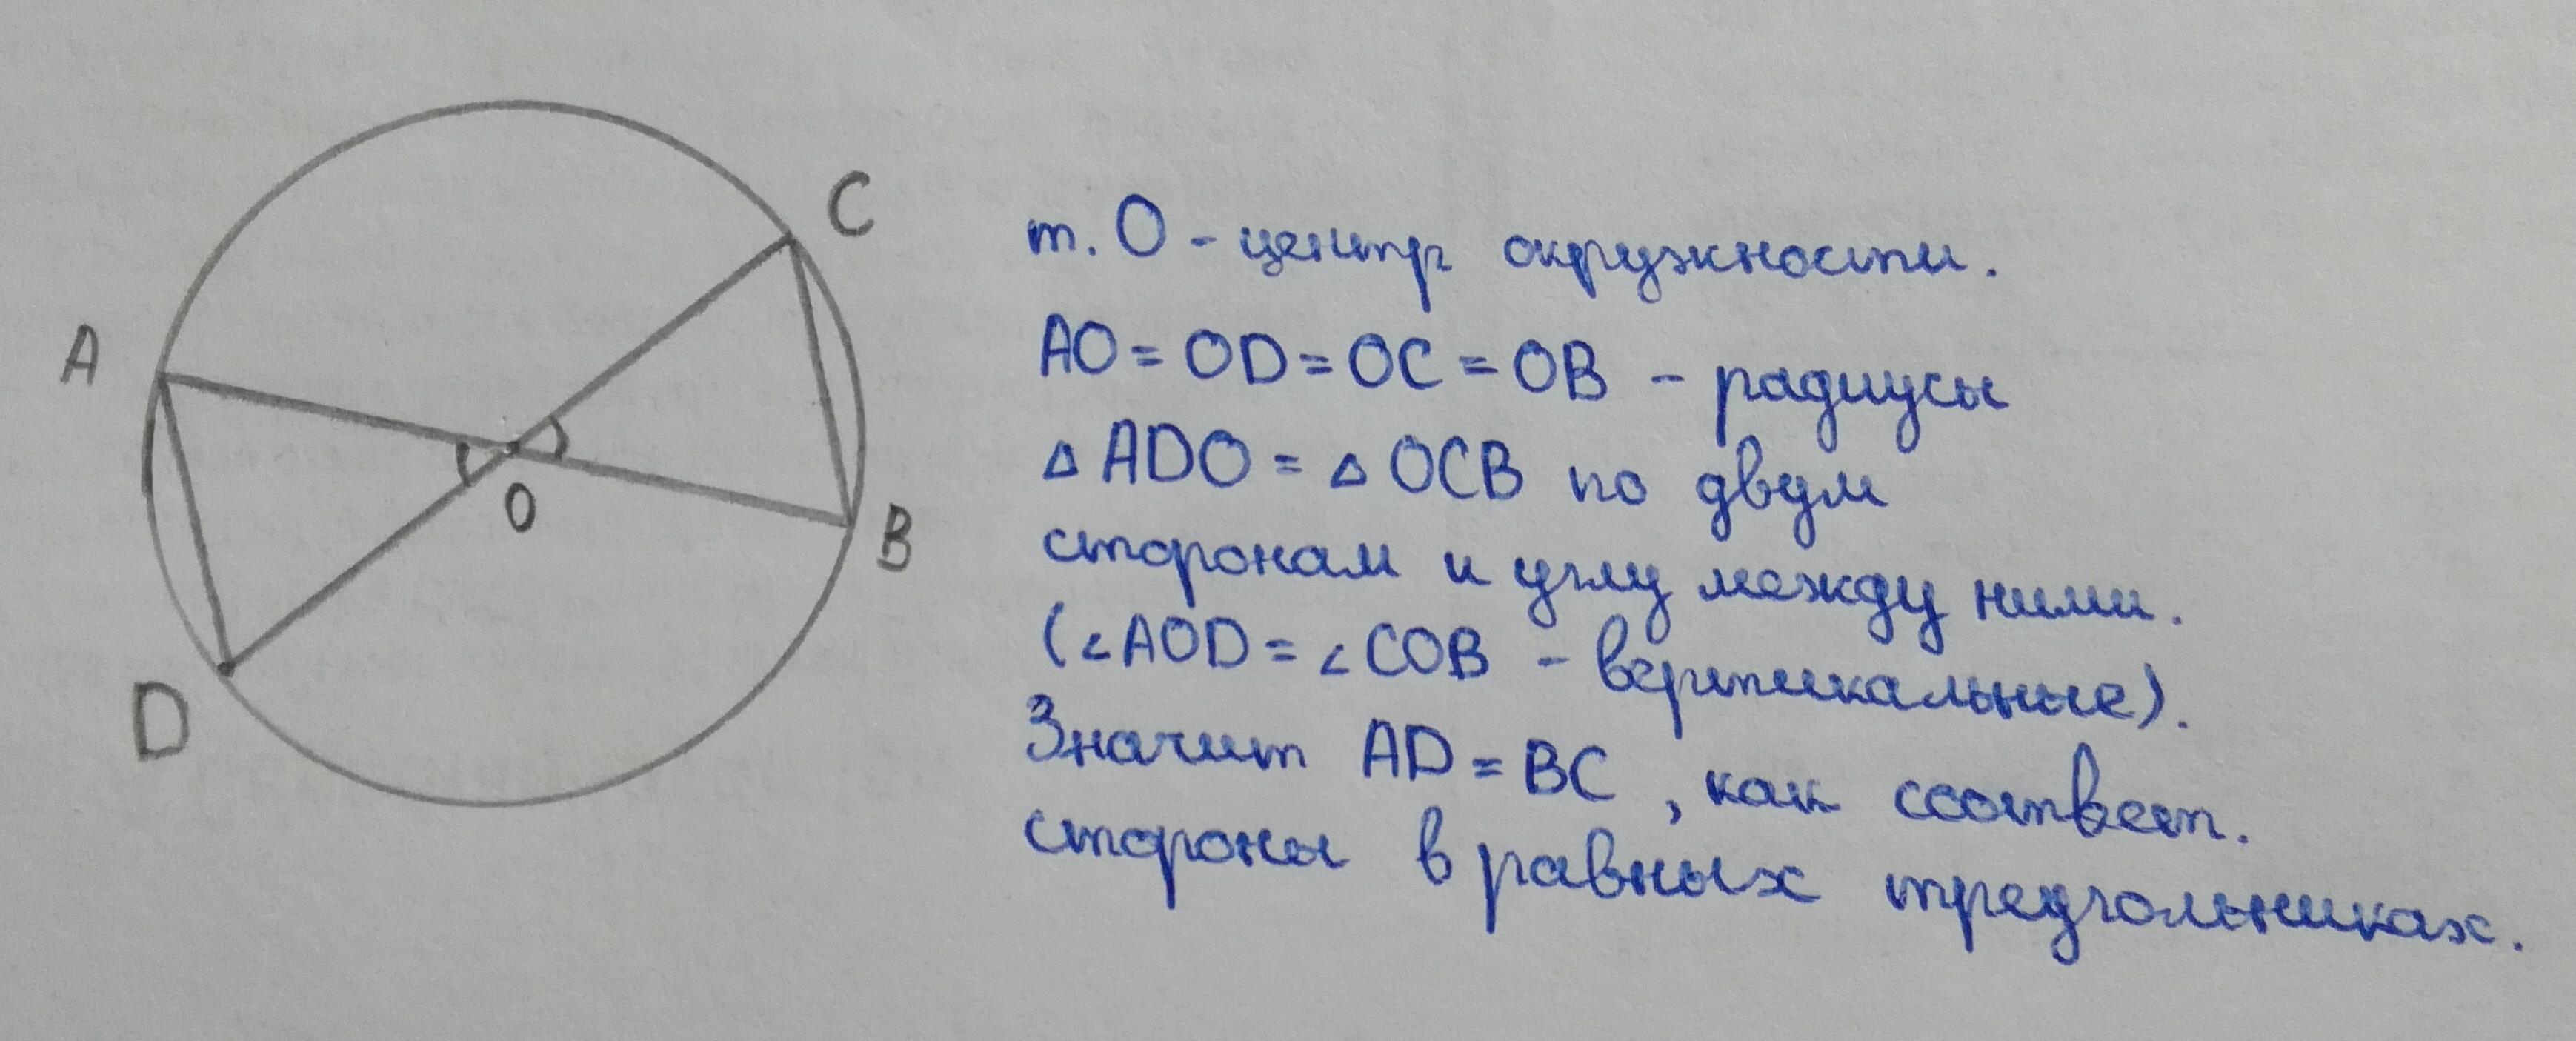 C
A
O
B
D
т. О - центр окружности.
AO = OD = OC = OB - радиусы
△ ADO = △ OCB по двум
сторонам и углу между ними.
(∠AOD = ∠COB - вертикальные).
Значит AD = BC, как соответ.
стороны в равных треугольниках.